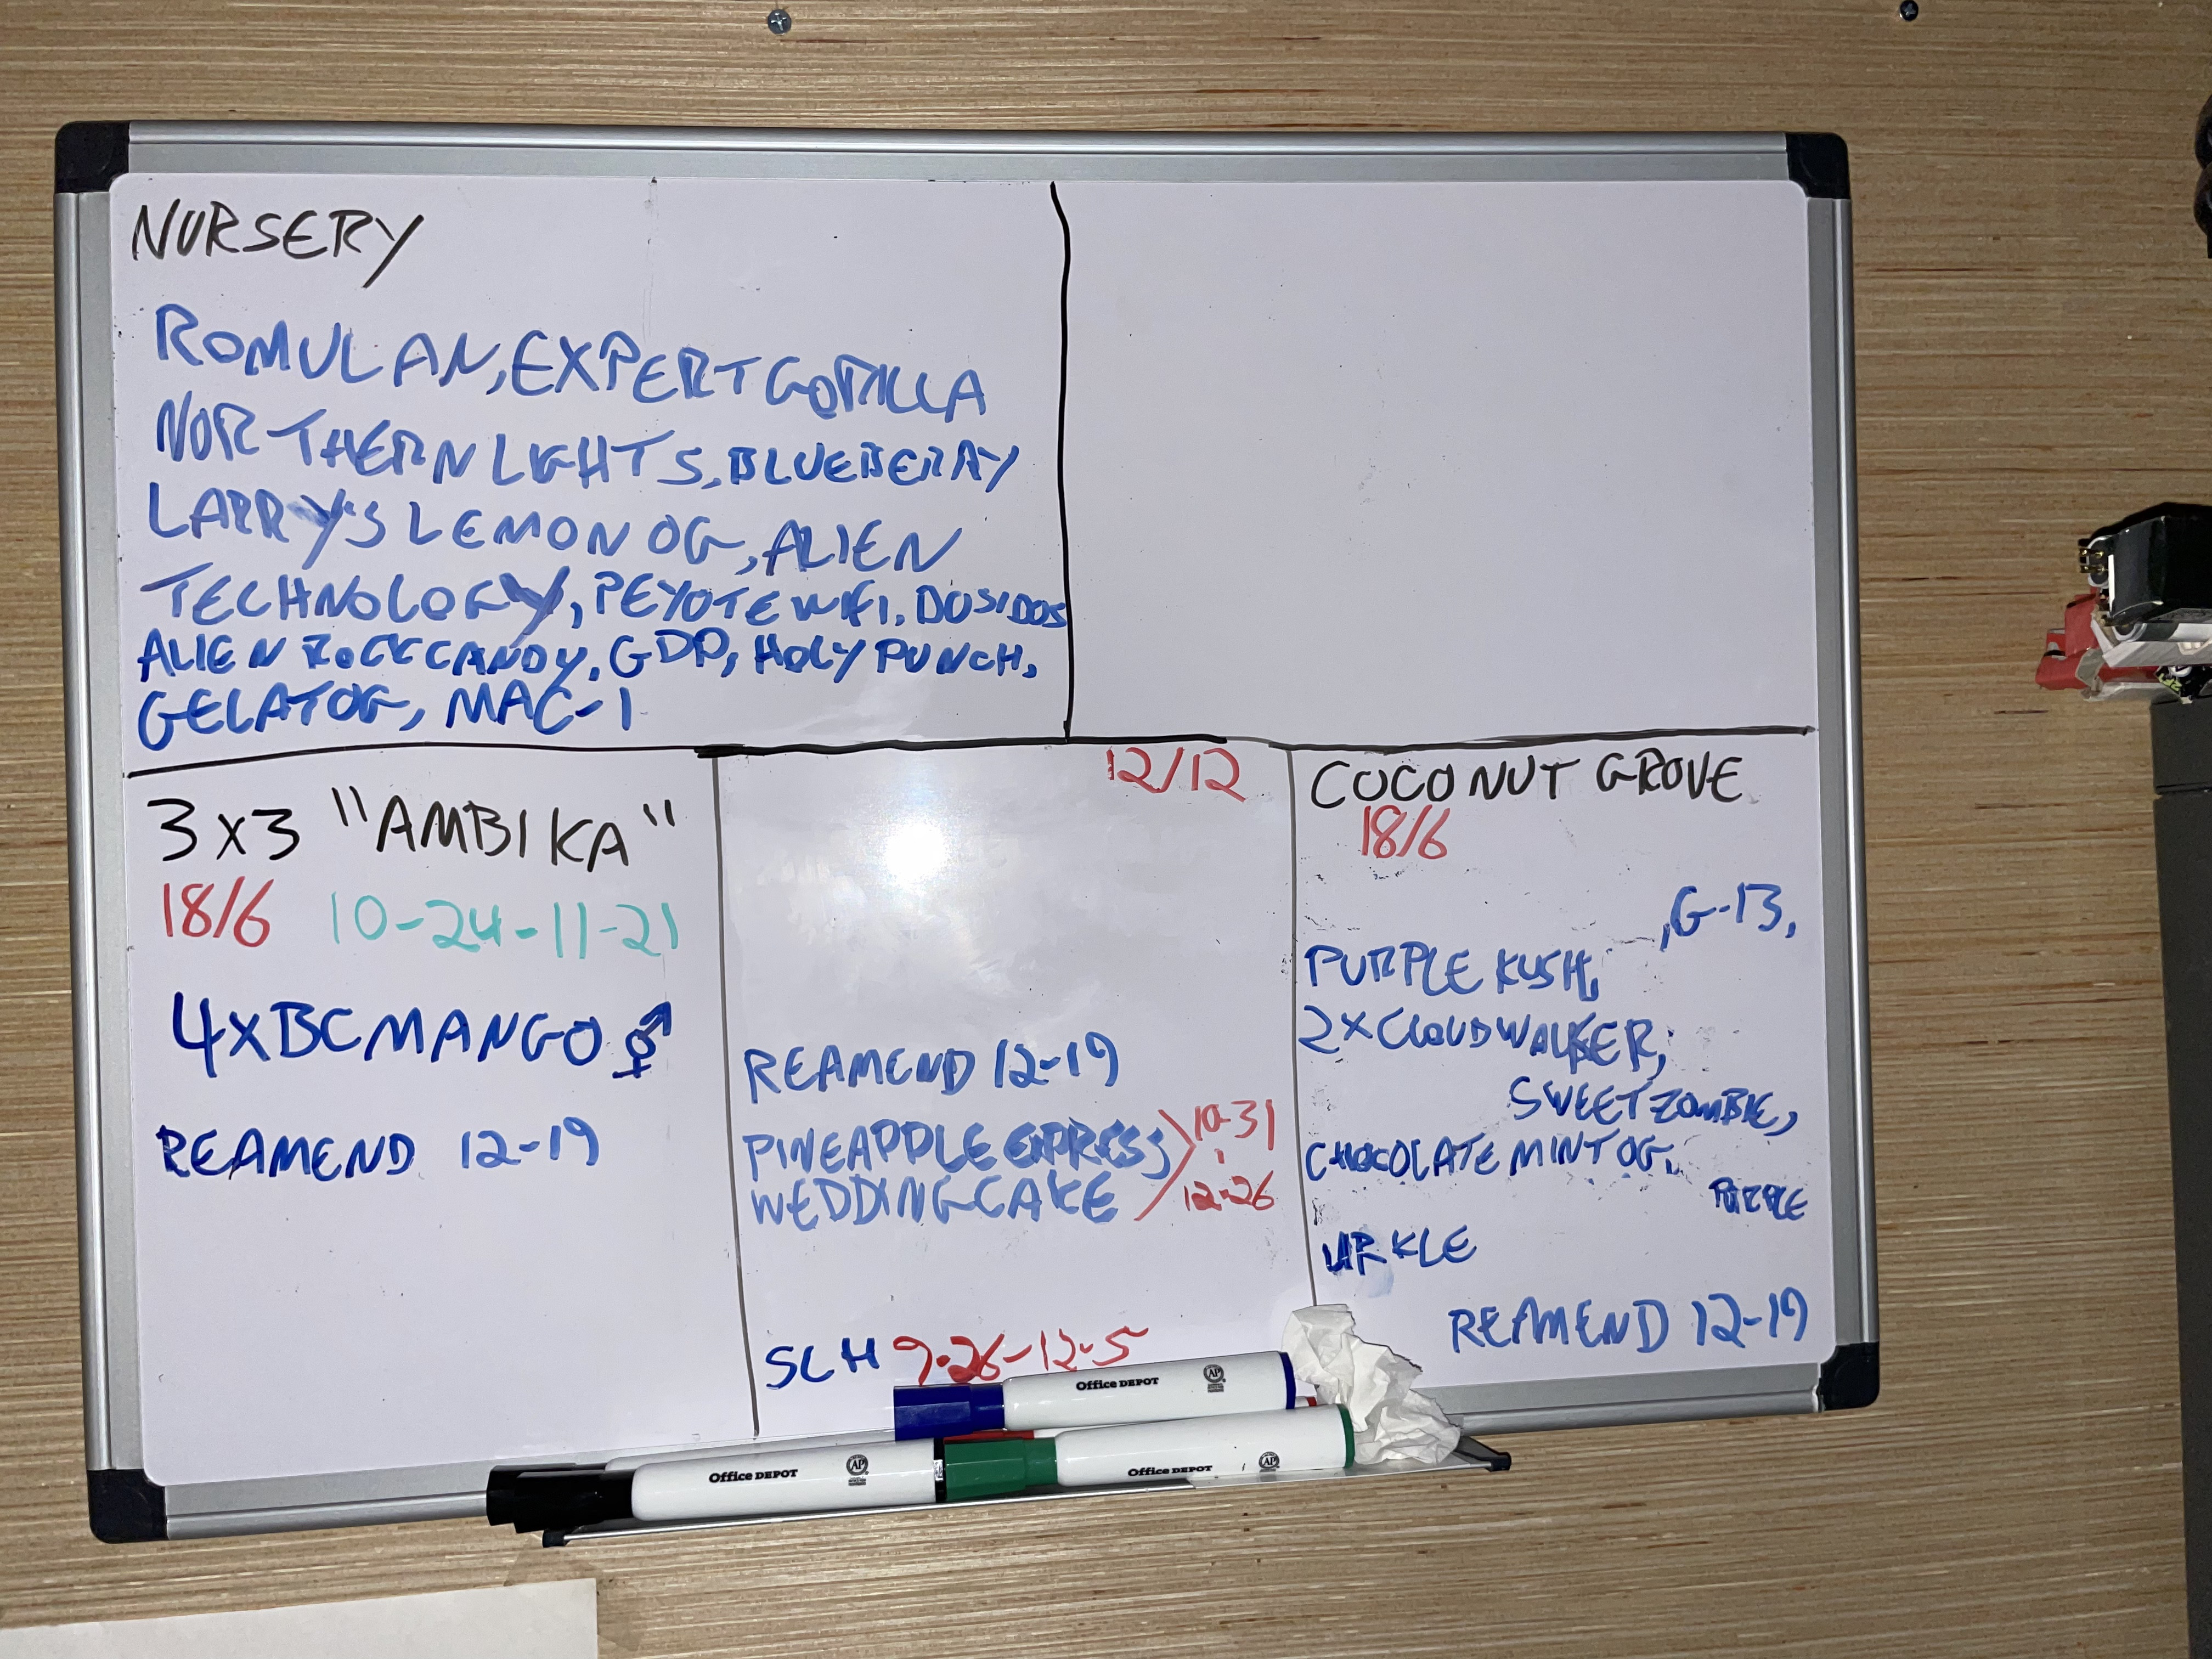 NURSERY
ROMULAN, EXPERT GORILLA
NORTHERN LIGHTS, BLUEBERRY
LARRY'S LEMON OG, ALIEN
TECHNOLOGY, PEYOTE WIFI, DOSIDOS
ALIEN ROCK CANDY, GDP, HOLY PUNCH,
GELATOG, MAC-1
3x3 "AMBIKA"
18/6 10-24-11-21
4xBC MANGO ⚥
REAMEND 12-19
12/12
REAMEND 12-19
PINEAPPLE EXPRESS
WEDDING CAKE
10-31
12-26
SLH 9-26-12-5
COCONUT GROVE
18/6
, G-13,
PURPLE KUSH,
2X CLOUDWALKER,
SWEET ZOMBIE,
CHOCOLATE MINT OG,
PURPLE
URKLE
REAMEND 12-19
Office DEPOT AP
Office DEPOT AP
Office DEPOT AP